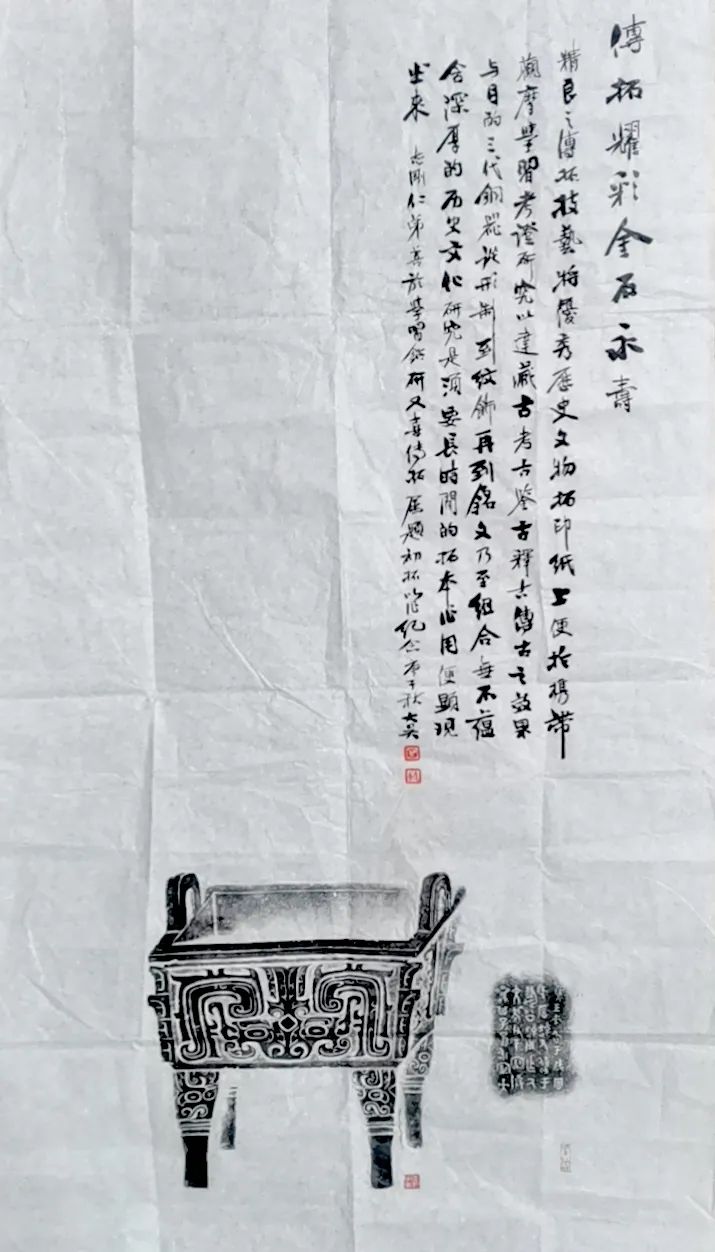 傳拓耀彩金石永壽
精良之傳拓技藝將優秀歷史文物拓印紙上便於攜帶
觀摩學習考證研究以達藏古考古鑒古釋古傳古之效果
与目的三代銅器從形制到紋飾再到銘文乃至組合無不蘊
含深厚的历史文化研究是須要長時間的拓本作用便顯現
出來
志剛仁弟善於學習鑽研又喜傳拓屬題初拓以作紀念庚子秋